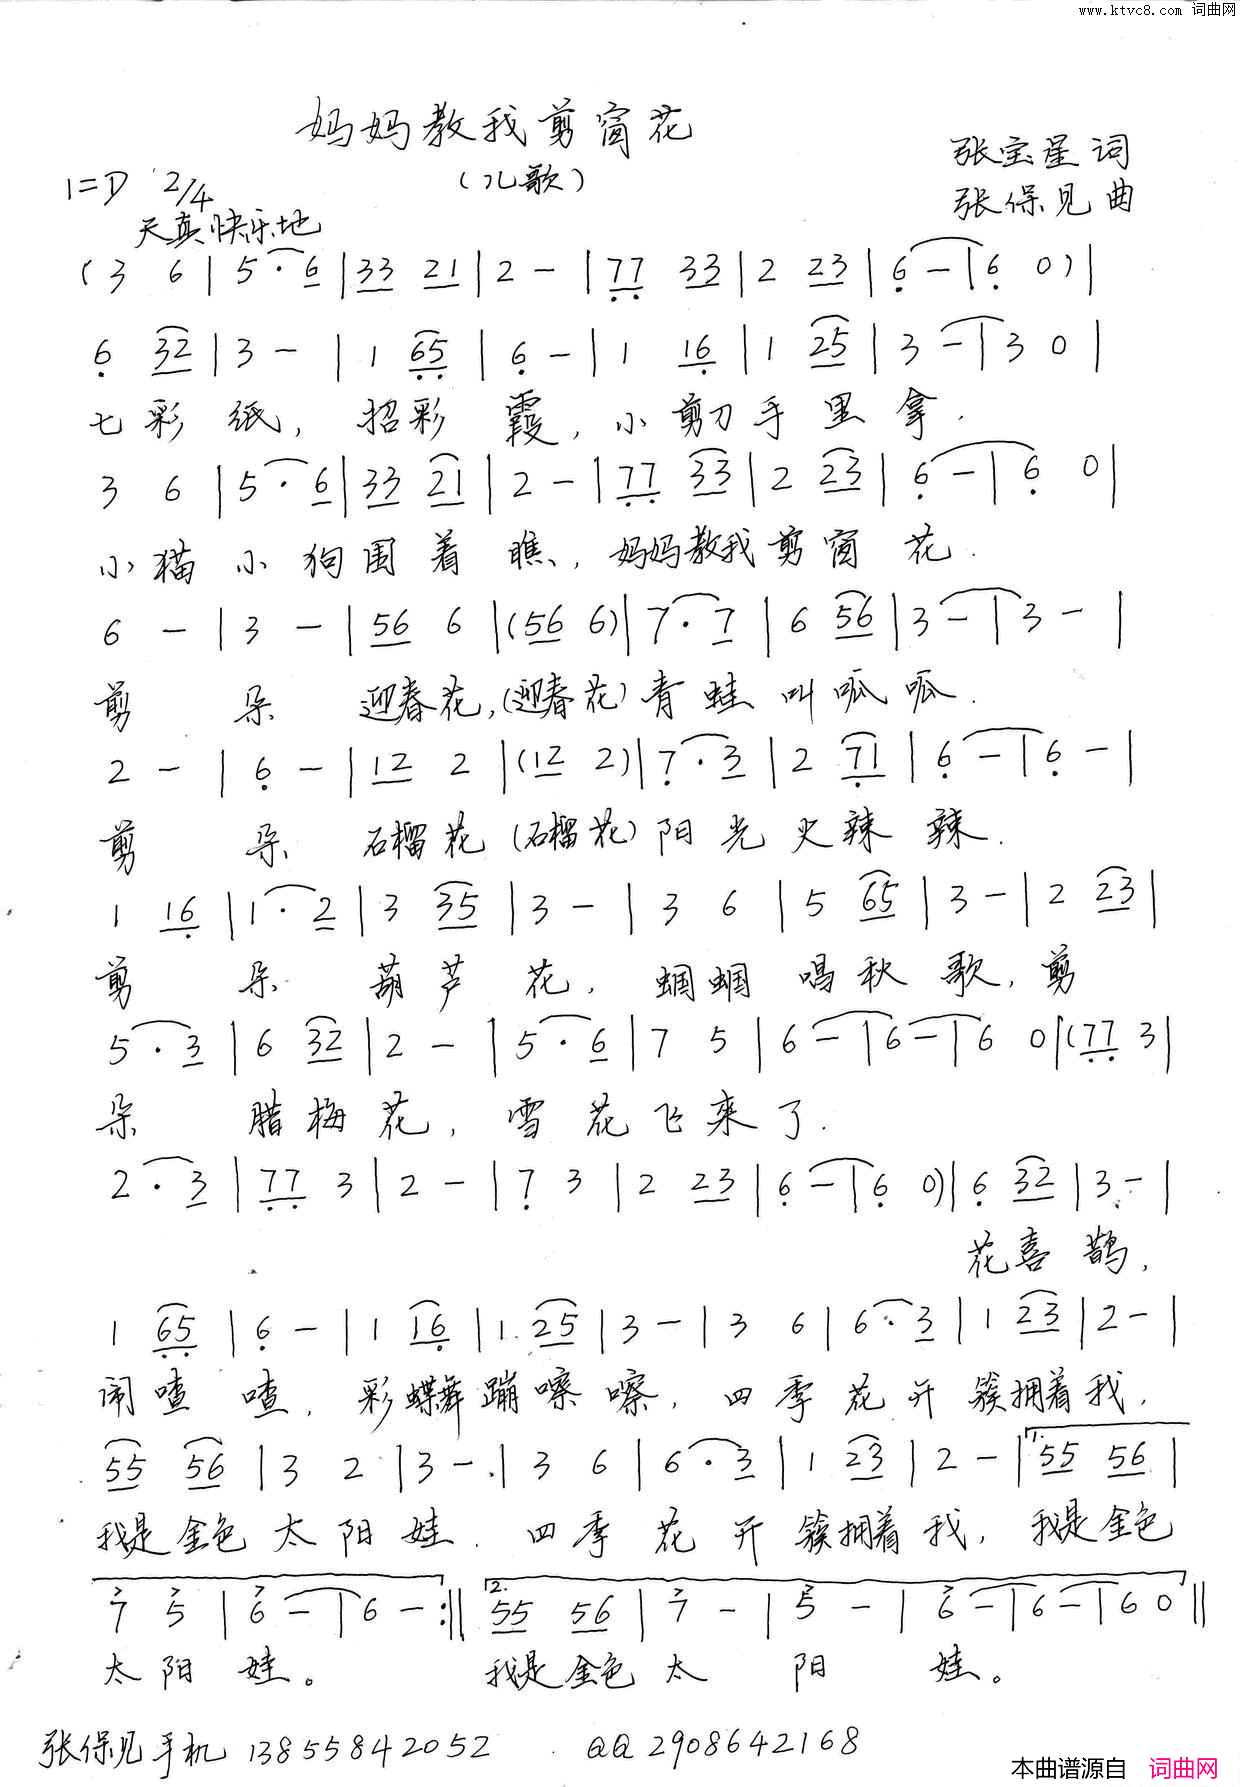 www.ktvc8.com 词曲网
妈妈教我剪窗花
(儿歌)
张宝星词
1=D 2/4
张保见曲
天真快乐地
(3 6 | 5 · 6 | 33 21 | 2 — | 77 33 | 2 23 | 6 — | 6 0) |
6 32 | 3 — | 1 65 | 6 — | 1 16 | 1 25 | 3 — | 3 0 |
七彩纸，招彩霞，小剪刀手里拿．
3 6 | 5 · 6 | 33 21 | 2 — | 77 33 | 2 23 | 6 — | 6 0 |
小猫小狗围着瞧，妈妈教我剪窗花．
6 — | 3 — | 56 6 | (56 6) | 7 · 7 | 6 56 | 3 — | 3 — |
剪朵迎春花，(迎春花)青蛙叫呱呱．
2 — | 6 — | 12 2 | (12 2) | 7 · 3 | 2 71 | 6 — | 6 — |
剪朵石榴花(石榴花)阳光火辣辣．
1 16 | 1 · 2 | 3 35 | 3 — | 3 6 | 5 65 | 3 — | 2 23 |
剪朵葫芦花，蝈蝈唱秋歌，剪
5 · 3 | 6 32 | 2 — | 5 · 6 | 7 5 | 6 — | 6 — | 6 0 | (77 3 |
朵腊梅花，雪花飞来了．
2 · 3 | 77 3 | 2 — | 7 3 | 2 23 | 6 — | 6 0) | 6 32 | 3 — |
花喜鹊，
1 65 | 6 — | 1 16 | 1 25 | 3 — | 3 6 | 6 · 3 | 1 23 | 2 — |
闹喳喳，彩蝶舞蹦嚓嚓，四季花开簇拥着我，
1.
55 56 | 3 2 | 3 — | 3 6 | 6 · 3 | 1 23 | 2 — | 55 56 |
我是金色太阳娃．四季花开簇拥着我，我是金色
2.
7 5 | 6 — | 6 — :|| 55 56 | 7 — | 5 — | 6 — | 6 — | 6 0 ||
太阳娃。我是金色太阳娃。
张保见手机 13855842052 QQ 2908642168
本曲谱源自 词曲网